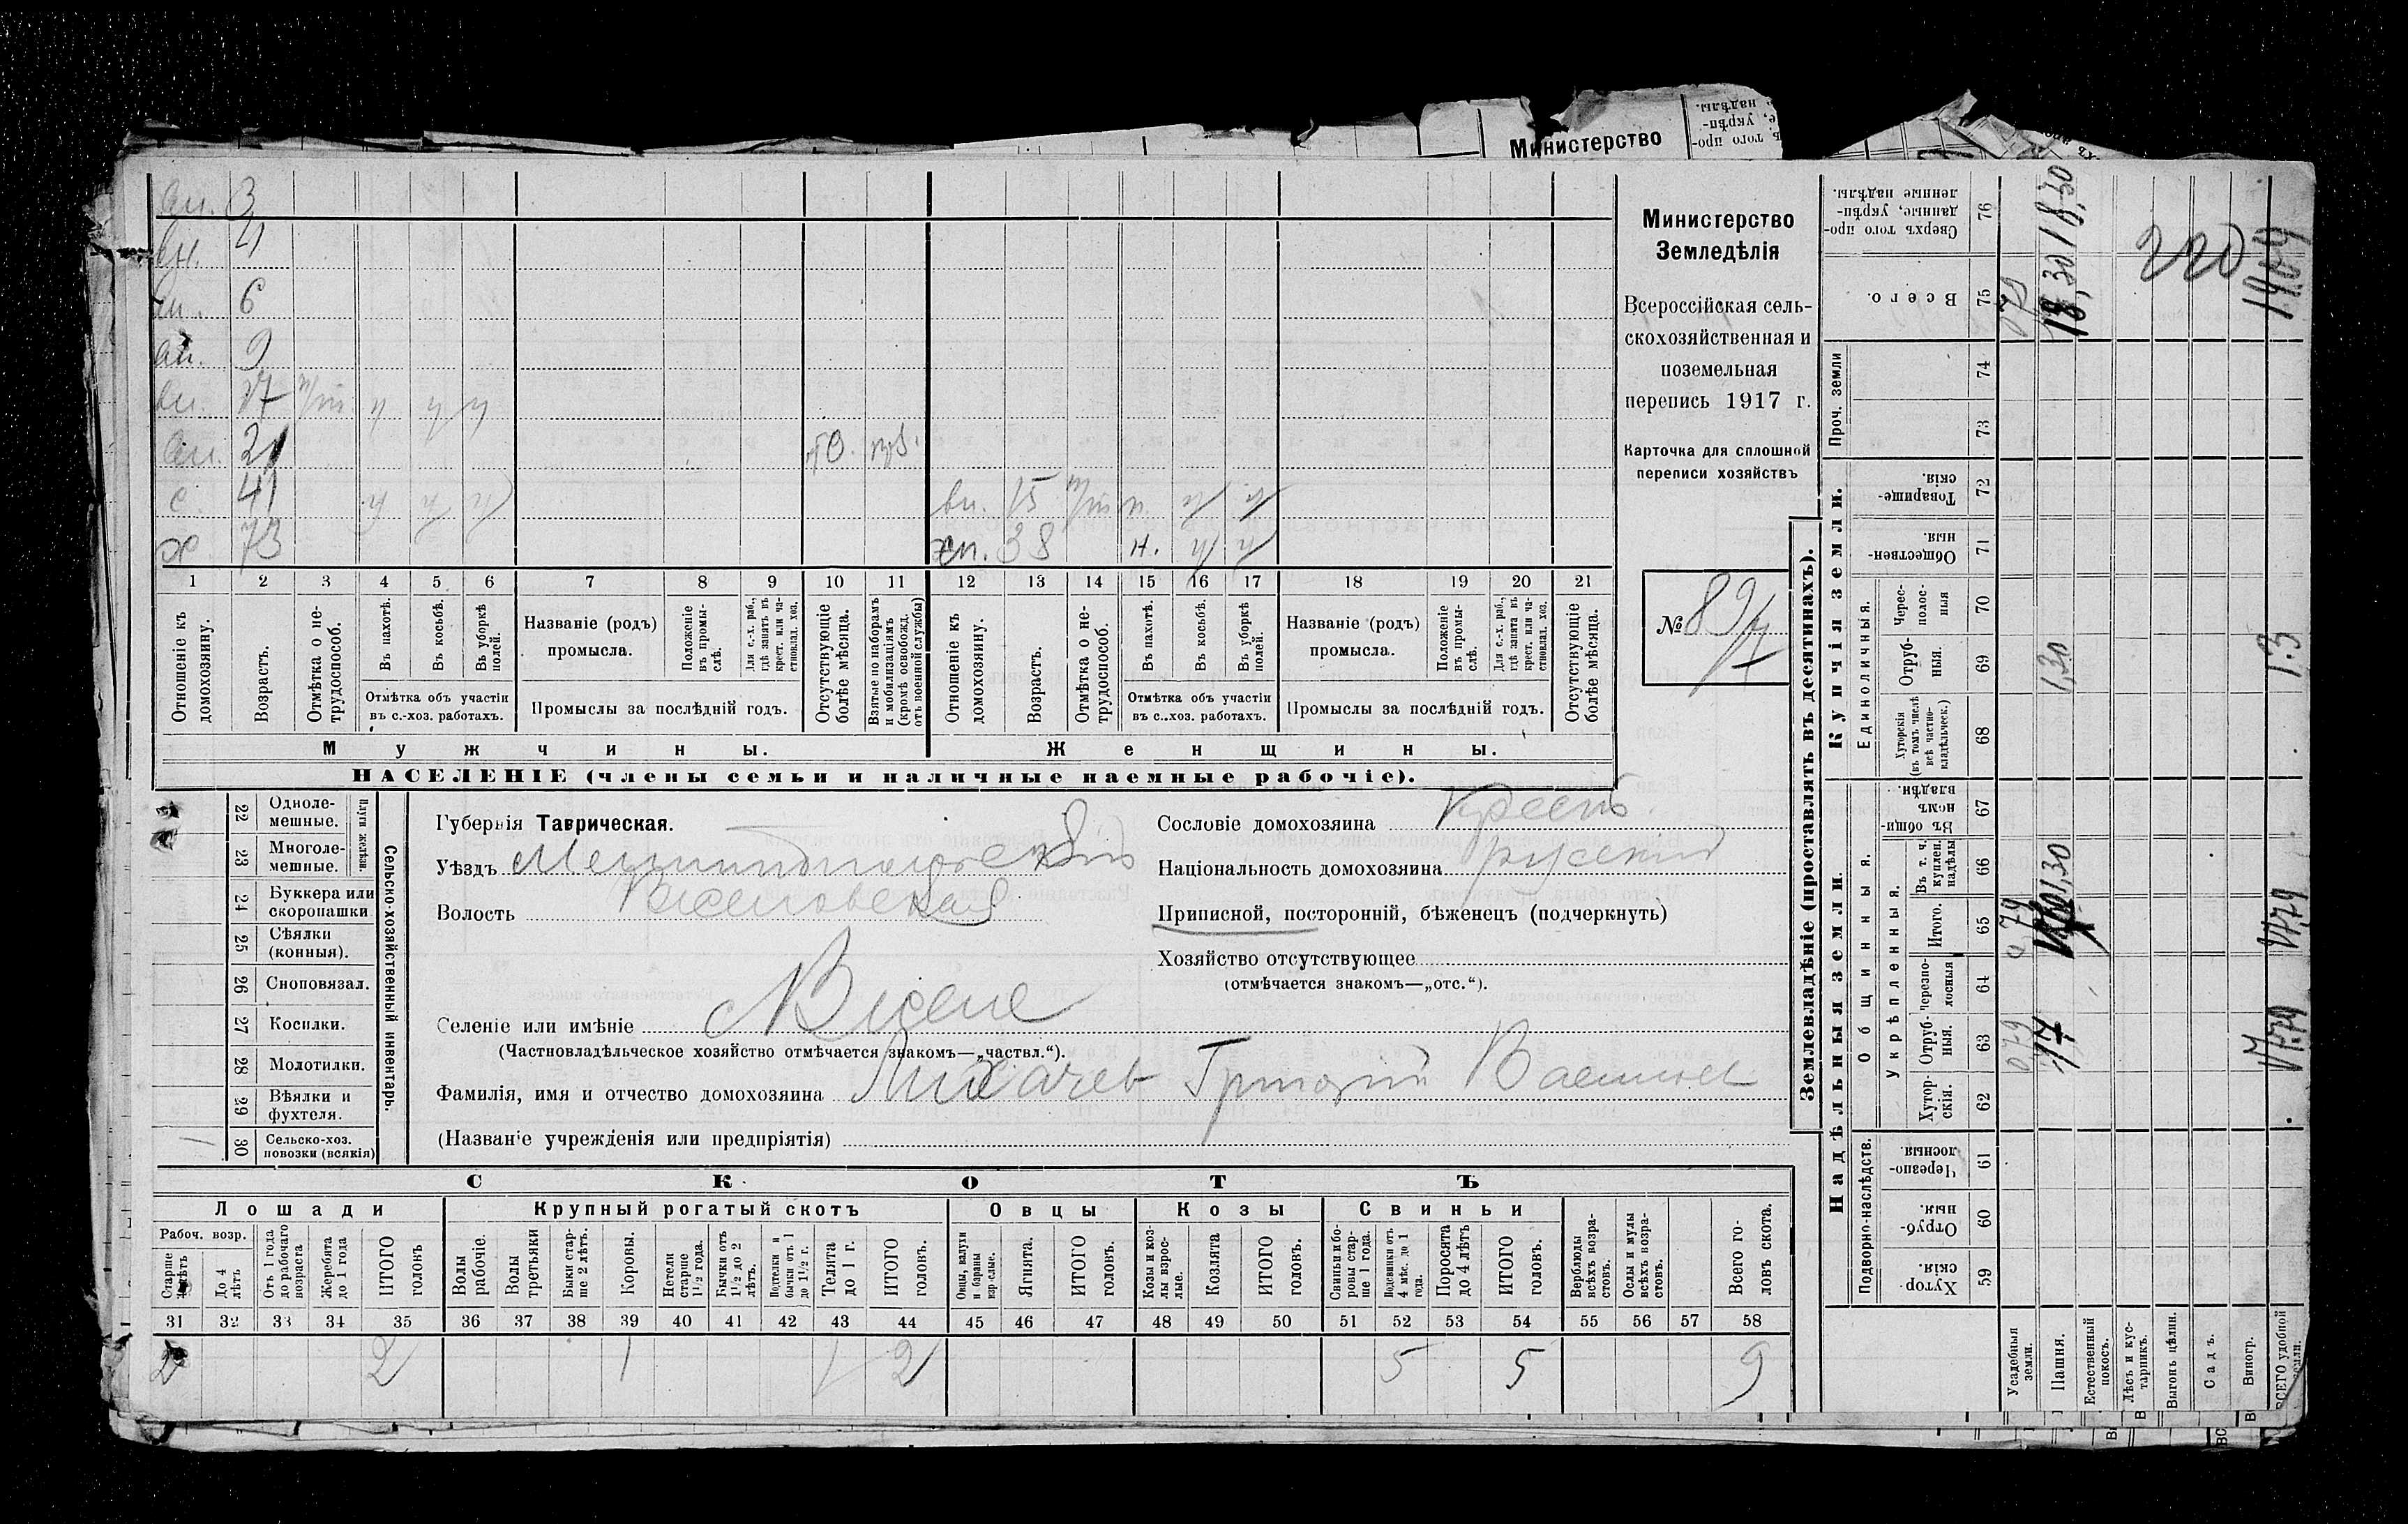 Министерство
Министерство
Земледѣлія
Всероссійская сель-
скохозяйственная и
поземельная
перепись 1917 г.
Карточка для сплошной
переписи хозяйствъ
№ 89/4
3
4
6
9
17 н/т н н н
21
с. 41 н н н вн. 15 н/т н. н н
х 73 сн. 38 н. н н
1 2 3 4 5 6 7 8 9 10 11 12 13 14 15 16 17 18 19 20 21
Отношеніе къ домохозяину.
Возрастъ.
Отмѣтка о не-трудоспособ.
Въ пахотѣ.
Въ косьбѣ.
Въ уборкѣ полей.
Отмѣтка объ участіи
въ с.-хоз. работахъ.
Названіе (родъ)
промысла.
Положеніе въ промы-слѣ.
Для с.-х. раб., гдѣ занятъ въ крест. или ча-стновлад. хоз.
Промыслы за послѣдній годъ.
Отсутствующіе болѣе мѣсяца.
Взятые по наборамъ и мобилизаціямъ (кромѣ освобожд. отъ военной службы)
Отношеніе къ домохозяину.
Возрастъ.
Отмѣтка о не-трудоспособ.
Въ пахотѣ.
Въ косьбѣ.
Въ уборкѣ полей.
Отмѣтка объ участіи
въ с.-хоз. работахъ.
Названіе (родъ)
промысла.
Положеніе въ промы-слѣ.
Для с.-х. раб., гдѣ занята въ крест. или ча-стновлад. хоз.
Промыслы за послѣдній годъ.
Отсутствующіе болѣе мѣсяца.
Мужчины. Женщины.
НАСЕЛЕНІЕ (члены семьи и наличные наемные рабочіе).
22 Одноле-мешные.
23 Многоле-мешные.
Плуги желѣзн.
24 Буккера или скоропашки
25 Сѣялки (конныя).
26 Сноповязал.
27 Косилки.
28 Молотилки.
29 Вѣялки и фухтеля.
30 Сельско-хоз. повозки (всякія)
Сельско-хозяйственный инвентарь.
Губернія Таврическая.
Уѣздъ Мелитопольскій
Волость
Селеніе или имѣніе
(Частновладѣльческое хозяйство отмѣчается знакомъ—„частвл.“).
Фамилія, имя и отчество домохозяина Лихачев Григорій Васильев
(Названіе учрежденія или предпріятія)
Сословіе домохозяина крест.
Національность домохозяина русскій
Приписной, посторонній, бѣженецъ (подчеркнуть)
Хозяйство отсутствующее
(отмѣчается знакомъ—„отс.“).
СКОТЪ
Лошади Крупный рогатый скотъ Овцы Козы Свиньи
Рабоч. возр.
Старше 4 лѣтъ
До 4 лѣтъ
Отъ 1 года до рабочаго возраста
Жеребята до 1 года
ИТОГО головъ
Волы рабочіе.
Волы третьяки
Быки стар-ше 2 лѣтъ.
Коровы.
Нетели старше 1½ года.
Бычки отъ 1½ до 2 лѣтъ.
Подтелки и бычки отъ 1 до 1½ г.
Телята до 1 г.
ИТОГО головъ.
Овцы, валухи и бараны взрослые.
Ягнята.
ИТОГО головъ.
Козы и коз-лы взрос-лые.
Козлята
ИТОГО головъ.
Свиньи и бо-ровы стар-ше 1 года.
Подсвинки отъ 4 мѣс. до 1 года.
Поросята до 4 лѣтъ
ИТОГО головъ.
Верблюды всѣхъ возра-стовъ.
Ослы и мулы всѣхъ возра-стовъ.
Всего го-ловъ скота.
31 32 33 34 35 36 37 38 39 40 41 42 43 44 45 46 47 48 49 50 51 52 53 54 55 56 57 58
2 2 1 1 2 5 5 9
Землевладѣніе (проставлять въ десятинахъ).
Надѣльныя земли. Купчія земли.
Подворно-наслѣдств.
Общинныя.
Укрѣпленныя.
Единоличныя.
Проч. земли
Хутор-скія. 59
Отруб-ныя. 60
Черезпо-лосныя. 61
Хутор-скія. 62
Отруб-ныя. 63
Черезпо-лосныя 64
Итого. 65
Въ т. ч. куплен. надѣлы 66
Въ общи-номъ владѣн. 67
Хуторскія (въ томъ числѣ всѣ частно-владѣльческ.) 68
Отруб-ныя. 69
Черес-полос-ныя 70
Обществен-ныя. 71
Товарище-скія. 72
73
74
Всего. 75
Сверхъ того про-данные, укрѣп-ленные надѣлы. 76
Усадебныя земли.
Пашня.
Естественный покосъ.
Лѣсъ и кус-тарникъ.
Выгонъ цѣлин.
Садъ.
Виногр.
ВСЕГО удобной земли.
0,79 0,79 0,79
17 1,30 18,30 18,30
220
17,79 17,79 1.3